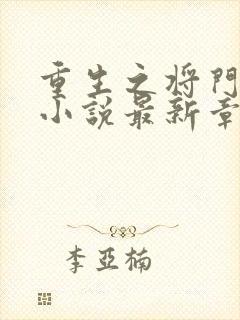 重生之将門
小説最新章
李亞楠